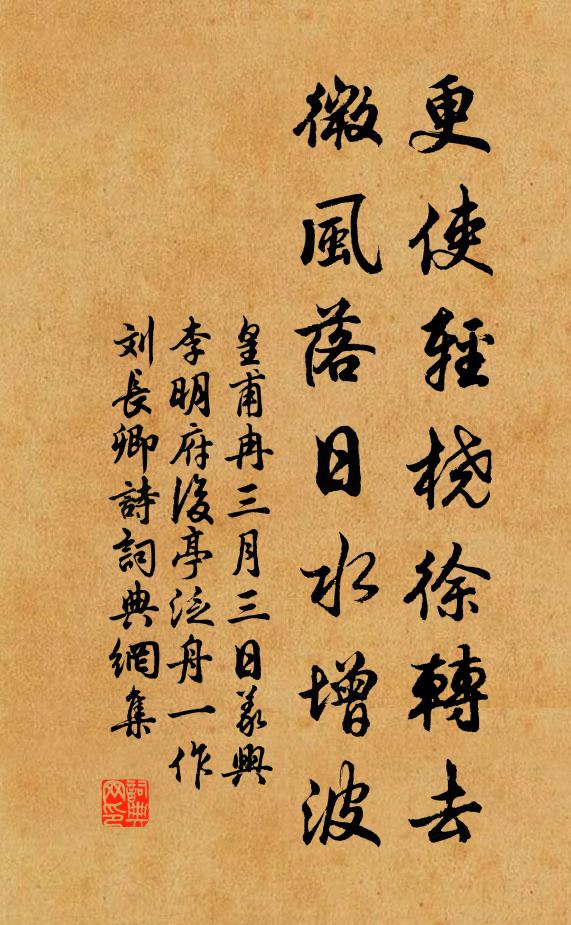 更使輕桡徐轉去
微風落日水增波
皇甫冉三月三日義興
李明府後亭泛舟一作
刘長卿詩詞典網集
詞典網印